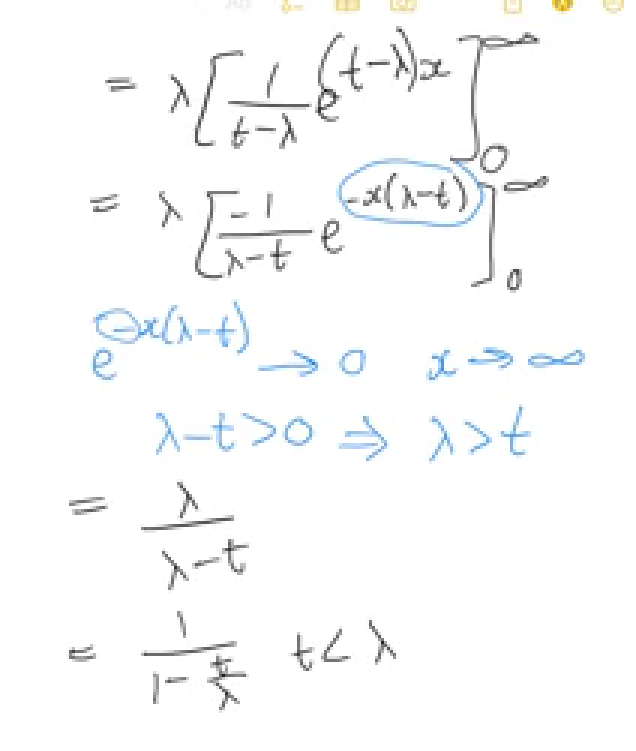 = λ[1/(t-λ) e^((t-λ)x)]_0^∞
= λ[-1/(λ-t) e^(-x(λ-t))]_0^∞
e^(-x(λ-t)) → 0 x → ∞
λ-t>0 ⇒ λ>t
= λ/(λ-t)
= 1/(1-t/λ) t<λ